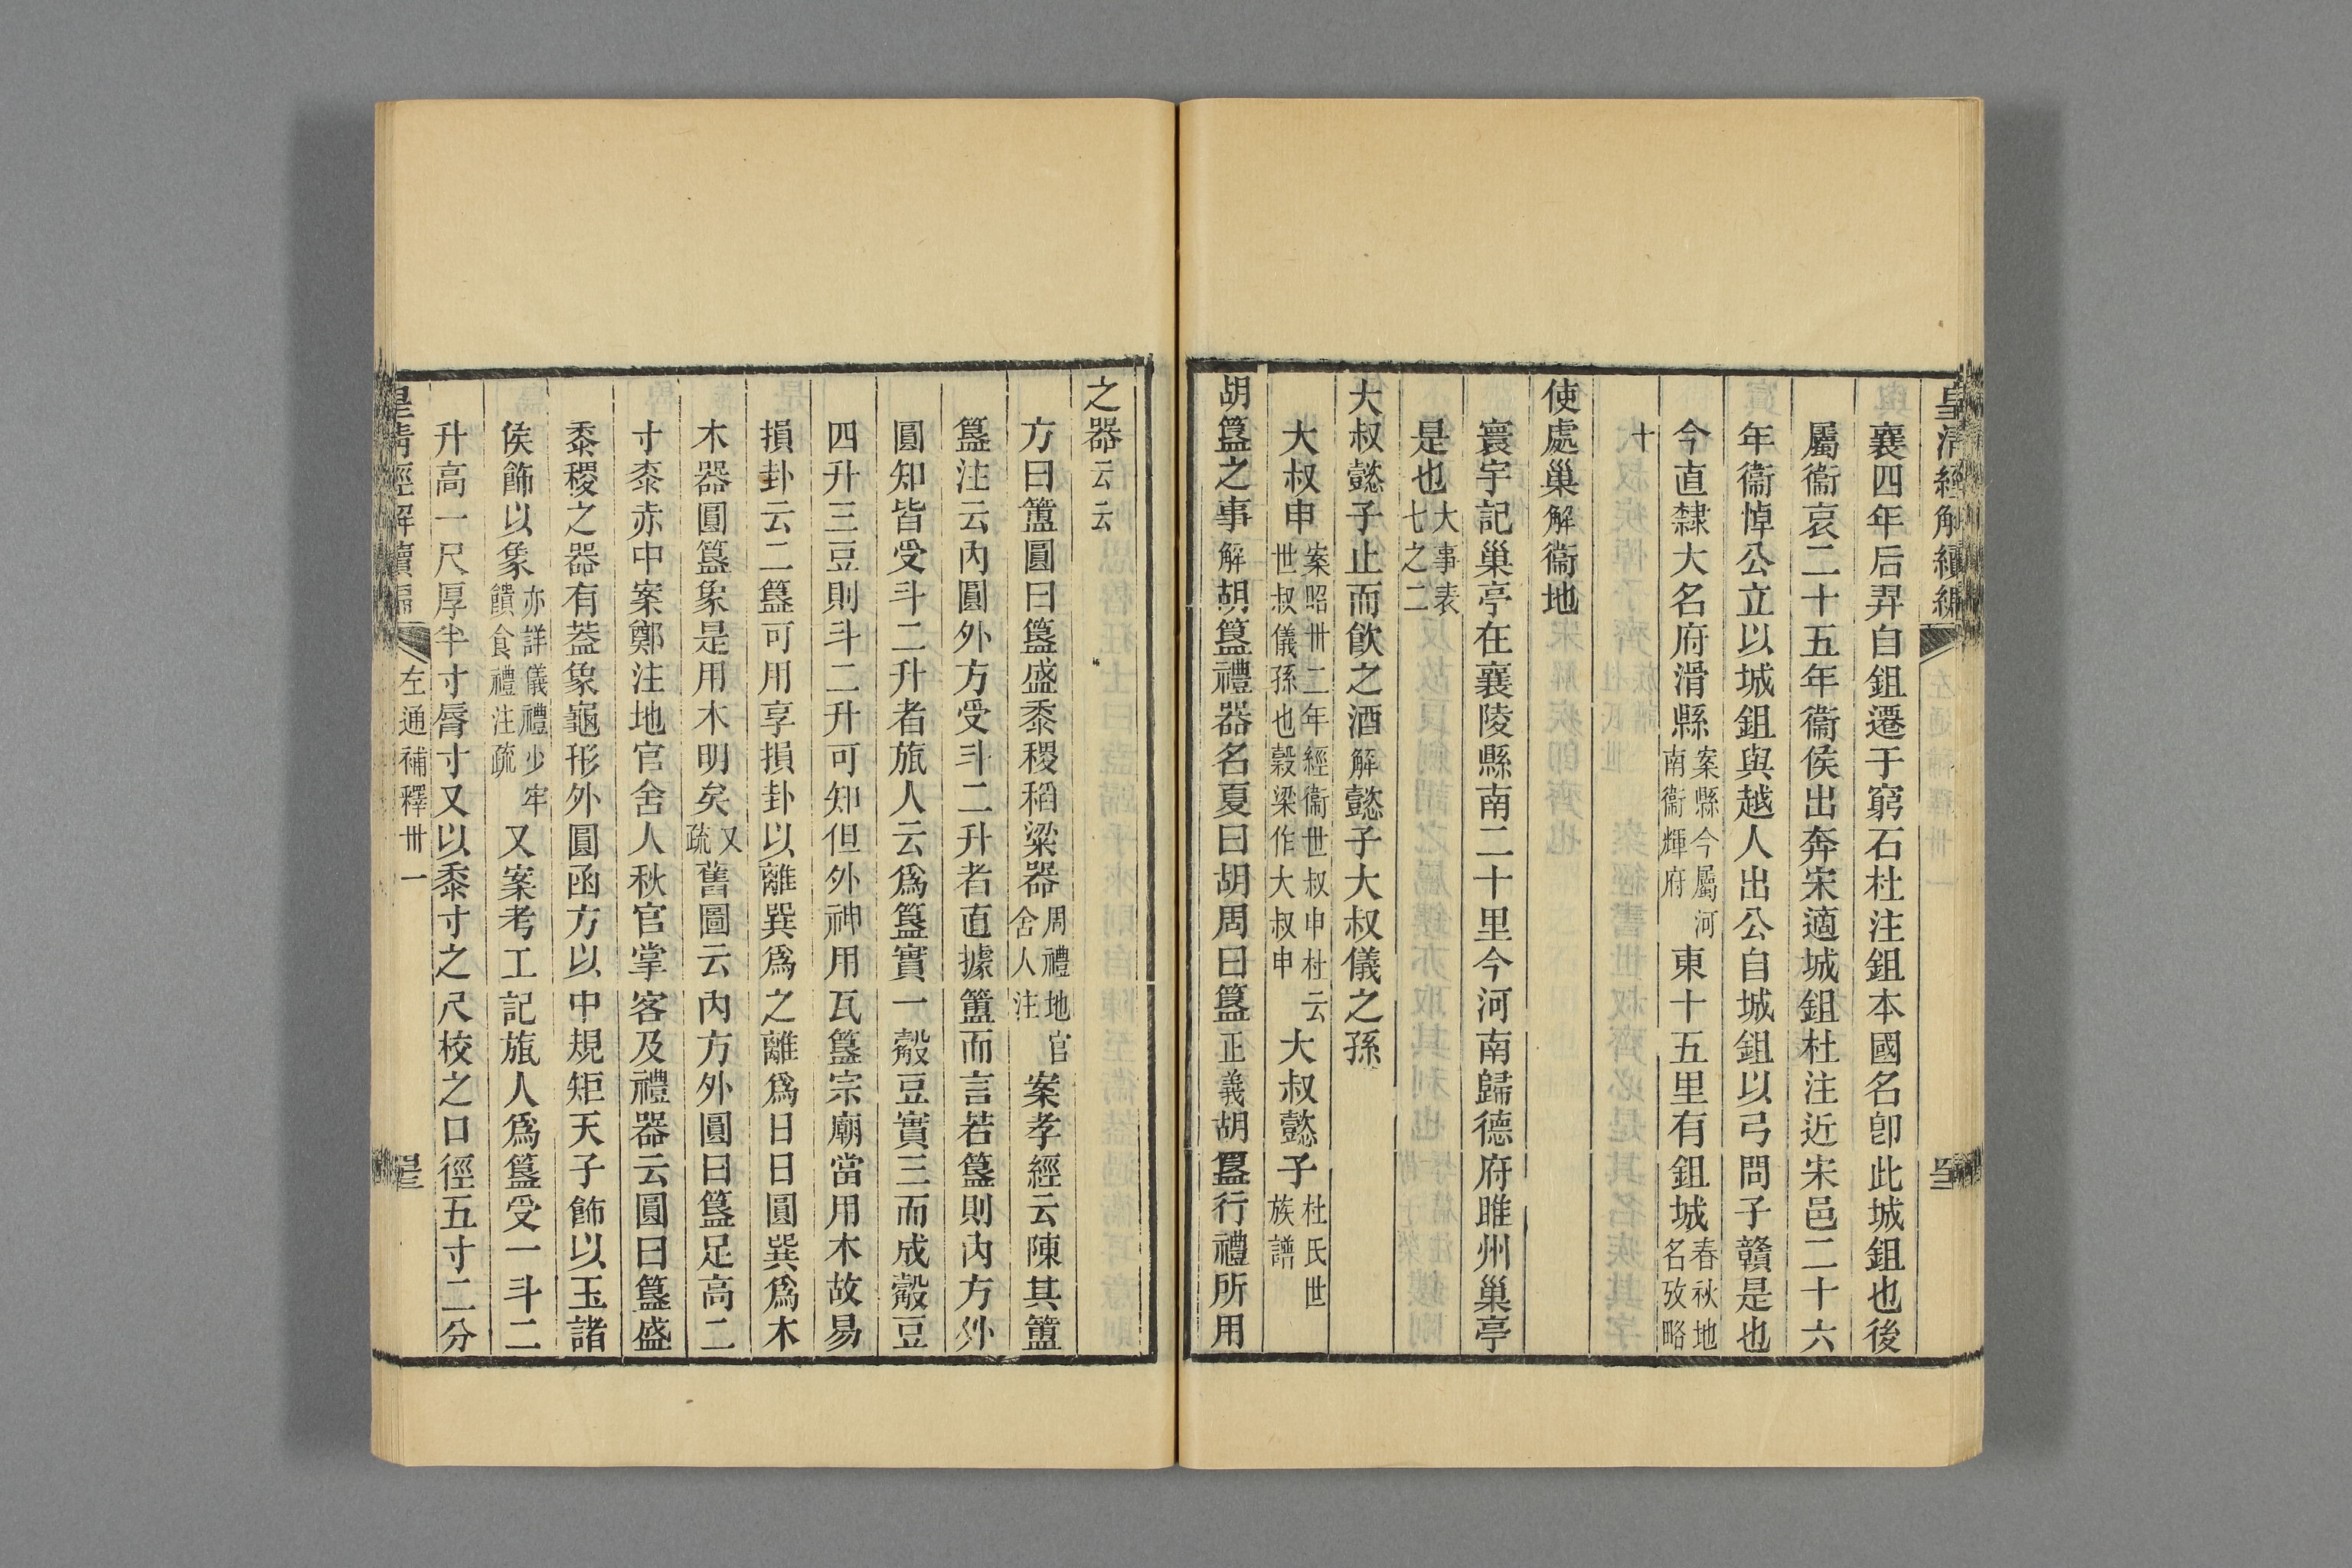 皇清經解續編
襄四年后羿自鉏遷于窮石杜注鉏本國名卽此城鉏也後
屬衞哀二十五年衞侯出奔宋適城鉏杜注近宋邑二十六
年衞悼公立以城鉏與越人出公自城鉏以弓問子贛是也
今直隸大名府滑縣案縣今屬河南衞輝府東十五里有鉏城春秋地名攷略
十
使處巢解衞地
寰宇記巢亭在襄陵縣南二十里今河南歸德府睢州巢亭
是也大事表七之二
大叔懿子止而飮之酒解懿子大叔儀之孫
大叔申案昭卅二年經衞世叔申杜云世叔儀孫也穀梁作大叔申大叔懿子杜氏世族譜
胡簋之事解胡簋禮器名夏曰胡周曰簋正義胡簋行禮所用
之器云云
方曰簠圓曰簋盛黍稷稻粱器周禮地官舍人注案孝經云陳其簠
簋注云內圓外方受斗二升者直據簠而言若簋則內方外
圓知皆受斗二升者旊人云爲簋實一觳豆實三而成觳豆
四升三豆則斗二升可知但外神用瓦簋宗廟當用木故易
損卦云二簋可用享損卦以離巽爲之離爲日日圓巽爲木
木器圓簋象是用木明矣又疏舊圖云內方外圓曰簋足高二
寸桼赤中案鄭注地官舍人秋官掌客及禮器云圓曰簋盛
黍稷之器有蓋象龜形外圓函方以中規矩天子飾以玉諸
侯飾以象亦詳儀禮少牢饋食禮注疏又案考工記旊人爲簋受一斗二
升高一尺厚半寸脣寸又以黍寸之尺校之口徑五寸二分
皇淸經解續編
左通補釋卅一